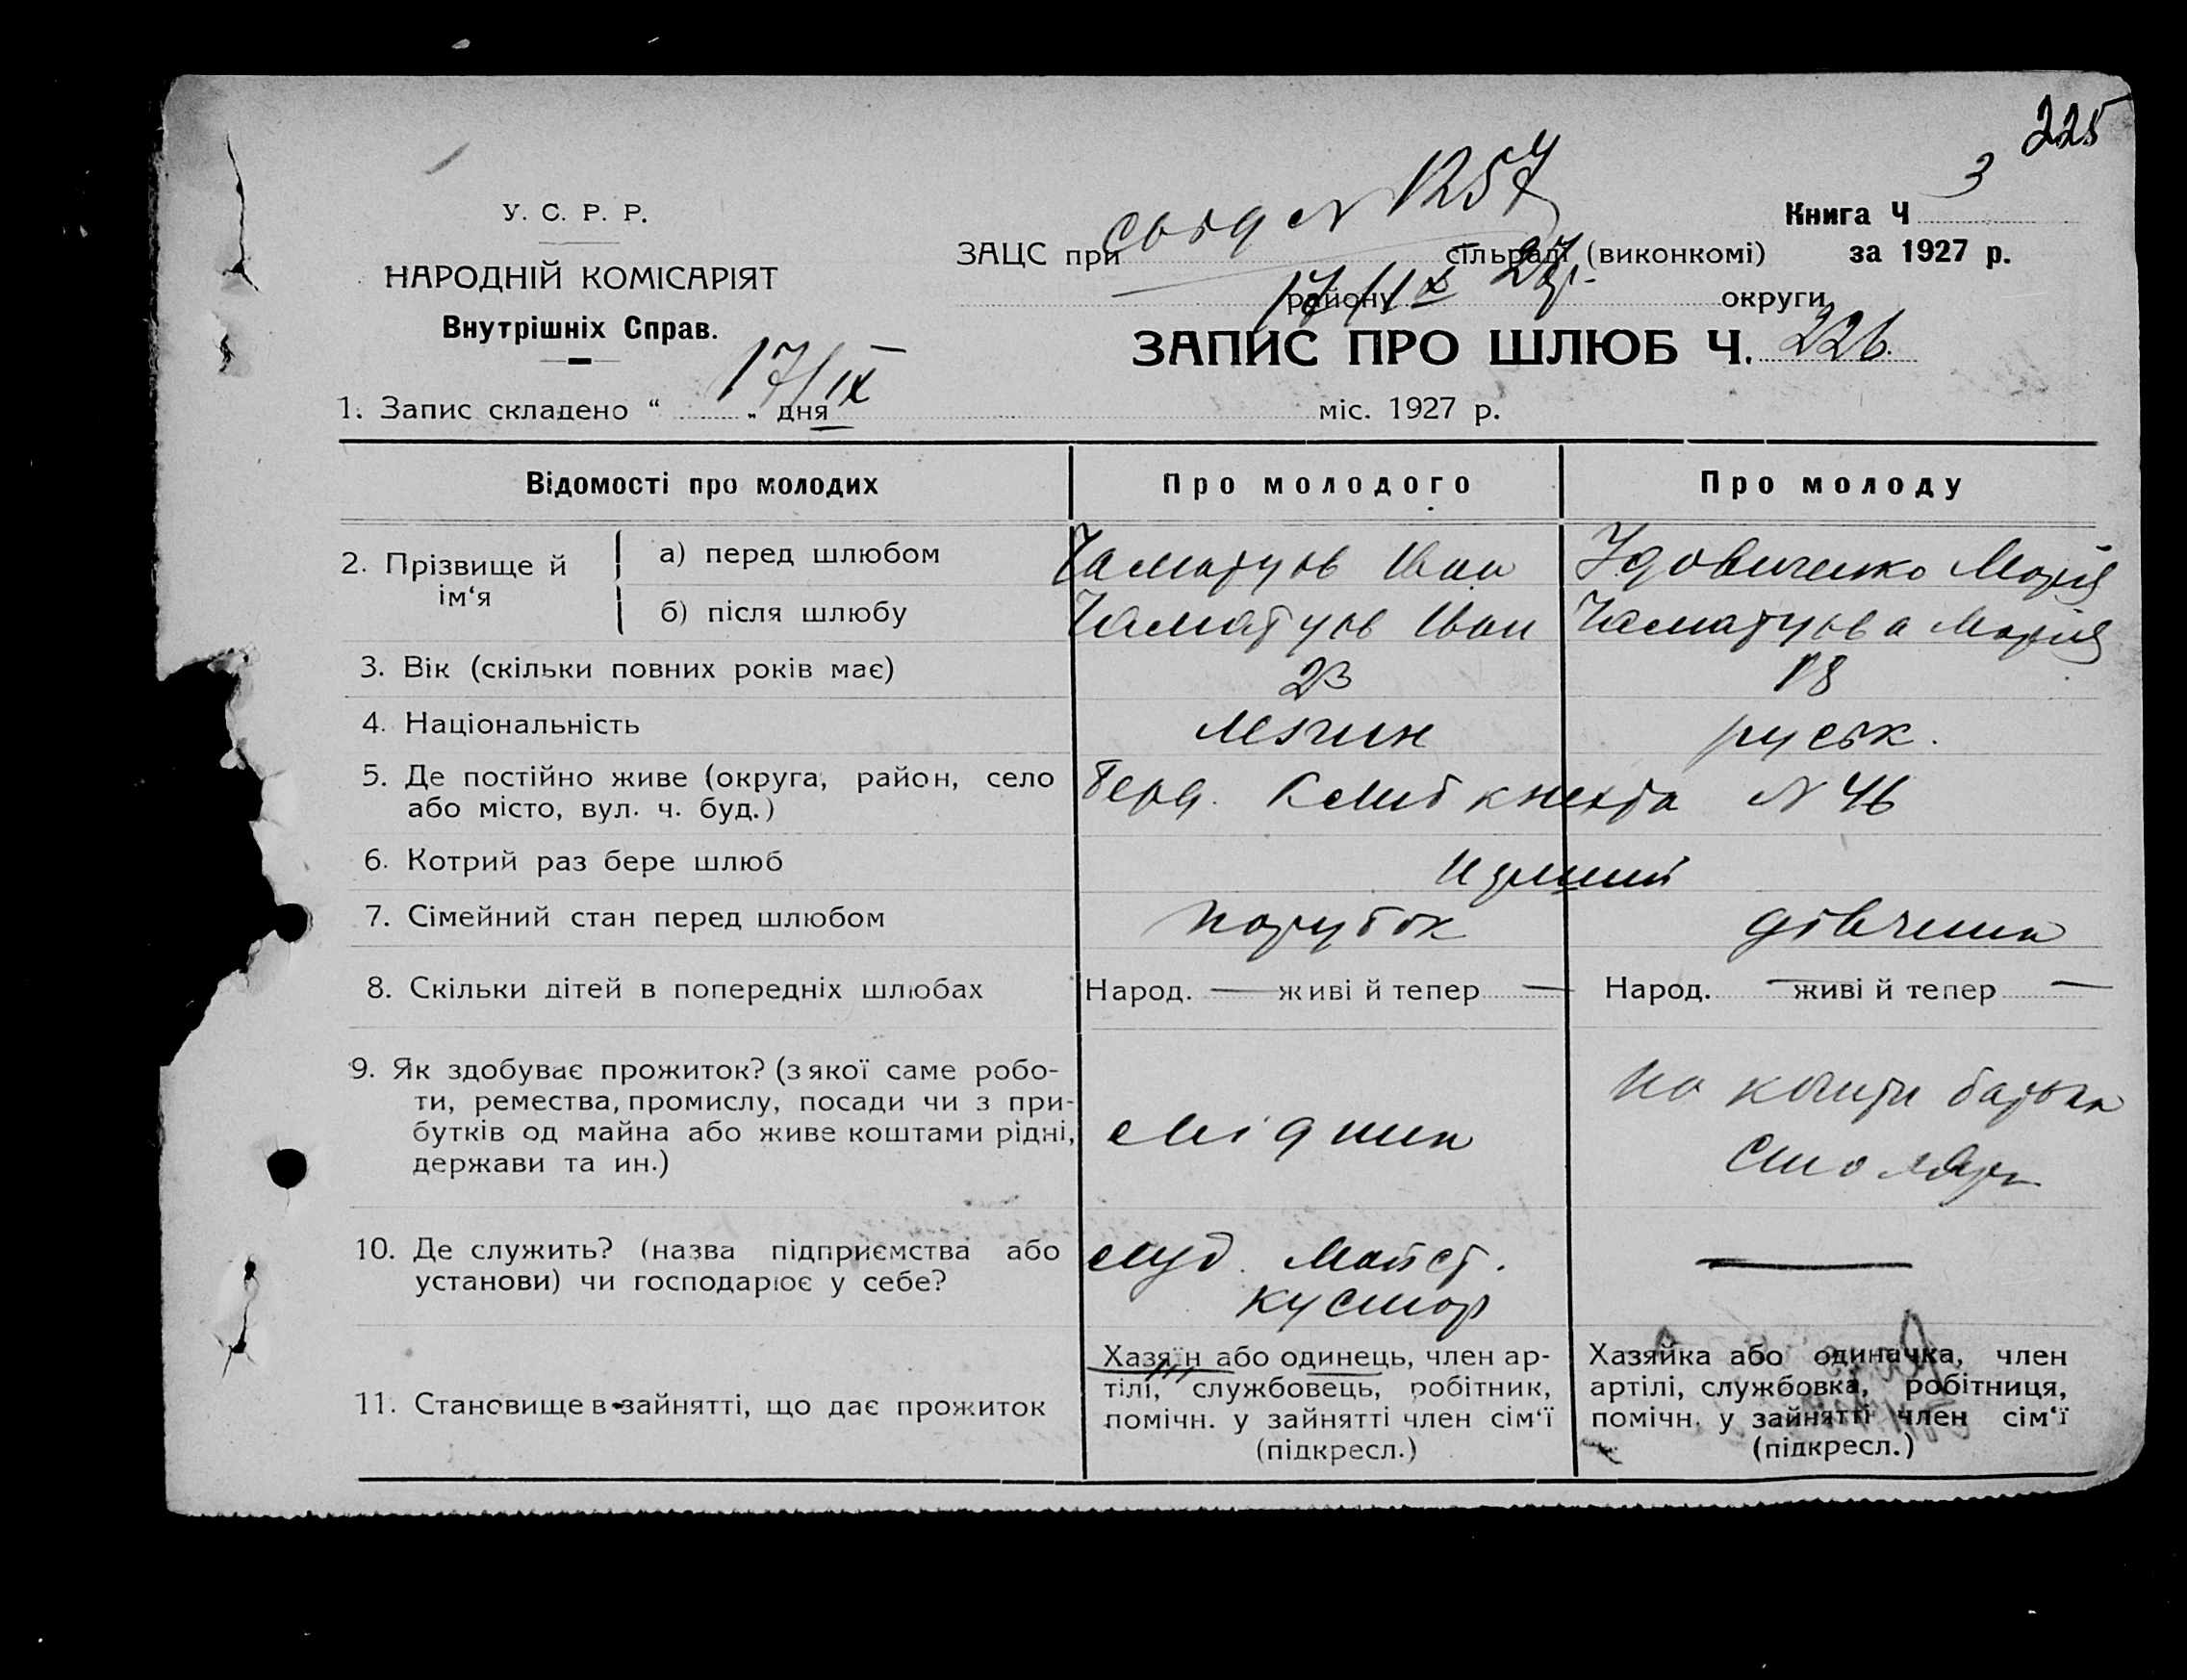 225
У. С. Р. Р.
НАРОДНІЙ КОМІСАРІЯТ
Внутрішніх Справ.
N 1257
Книга Ч 3
ЗАЦС при сільраді (виконкомі) за 1927 р.
району округи
17/ІХ 27 р.
ЗАПИС ПРО ШЛЮБ Ч. 226.
1. Запис складено “ 17/ІХ „ дня міс. 1927 р.
Відомості про молодих Про молодого Про молоду
2. Прізвище й ім‘я
а) перед шлюбом Іван Удовиченко Марія
б) після шлюбу Іван Марія
3. Вік (скільки повних років має) 23 18
4. Національність лезгин руськ.
5. Де постійно живе (округа, район, село
або місто, вул. ч. буд.) N 46
6. Котрий раз бере шлюб
7. Сімейний стан перед шлюбом парубок дівчина
8. Скільки дітей в попередніх шлюбах Народ. — живі й тепер — Народ. — живі й тепер —
9. Як здобуває прожиток? (з якої саме робо-
ти, ремества, промислу, посади чи з при-
бутків од майна або живе коштами рідні,
держави та ин.)
мідник
на кошти батька
столяр
10. Де служить? (назва підприємства або
установи) чи господарює у себе?
майст.
кустар
—
11. Становище в зайнятті, що дає прожиток
Хазяїн або одинець, член ар-
тілі, службовець, робітник,
помічн. у зайнятті член сім‘ї
(підкресл.)
Хазяйка або одиначка, член
артілі, службовка, робітниця,
помічн. у зайнятті член сім‘ї
(підкресл.)